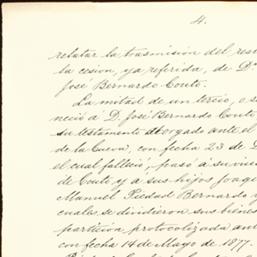 4.
relatar la trasmisión del res
la cesion, ya referida, de Dª
José Bernardo Couto.
La mitad de un tercio, o s
neció á D. José Bernardo Couto
su testamento otorgado ante el
de la Cueva, con fecha 23 de
el cual falleció, pasó a su viu
de Couto y a sus hijos Joaq
Manuel Piedad Bernardo y
cuales se dividieron sus bienes
particion protocolizada an
con fecha 14 de Mayo de 1877.